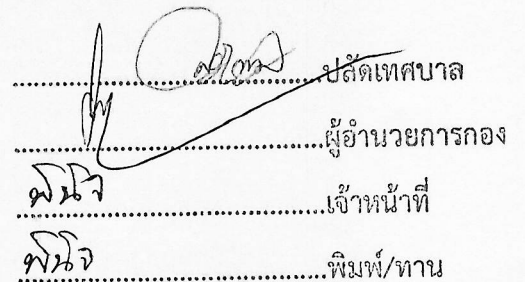 ....................ปลัดเทศบาล
....................ผู้อำนวยการกอง
พินิจ....................เจ้าหน้าที่
พินิจ....................พิมพ์/ทาน